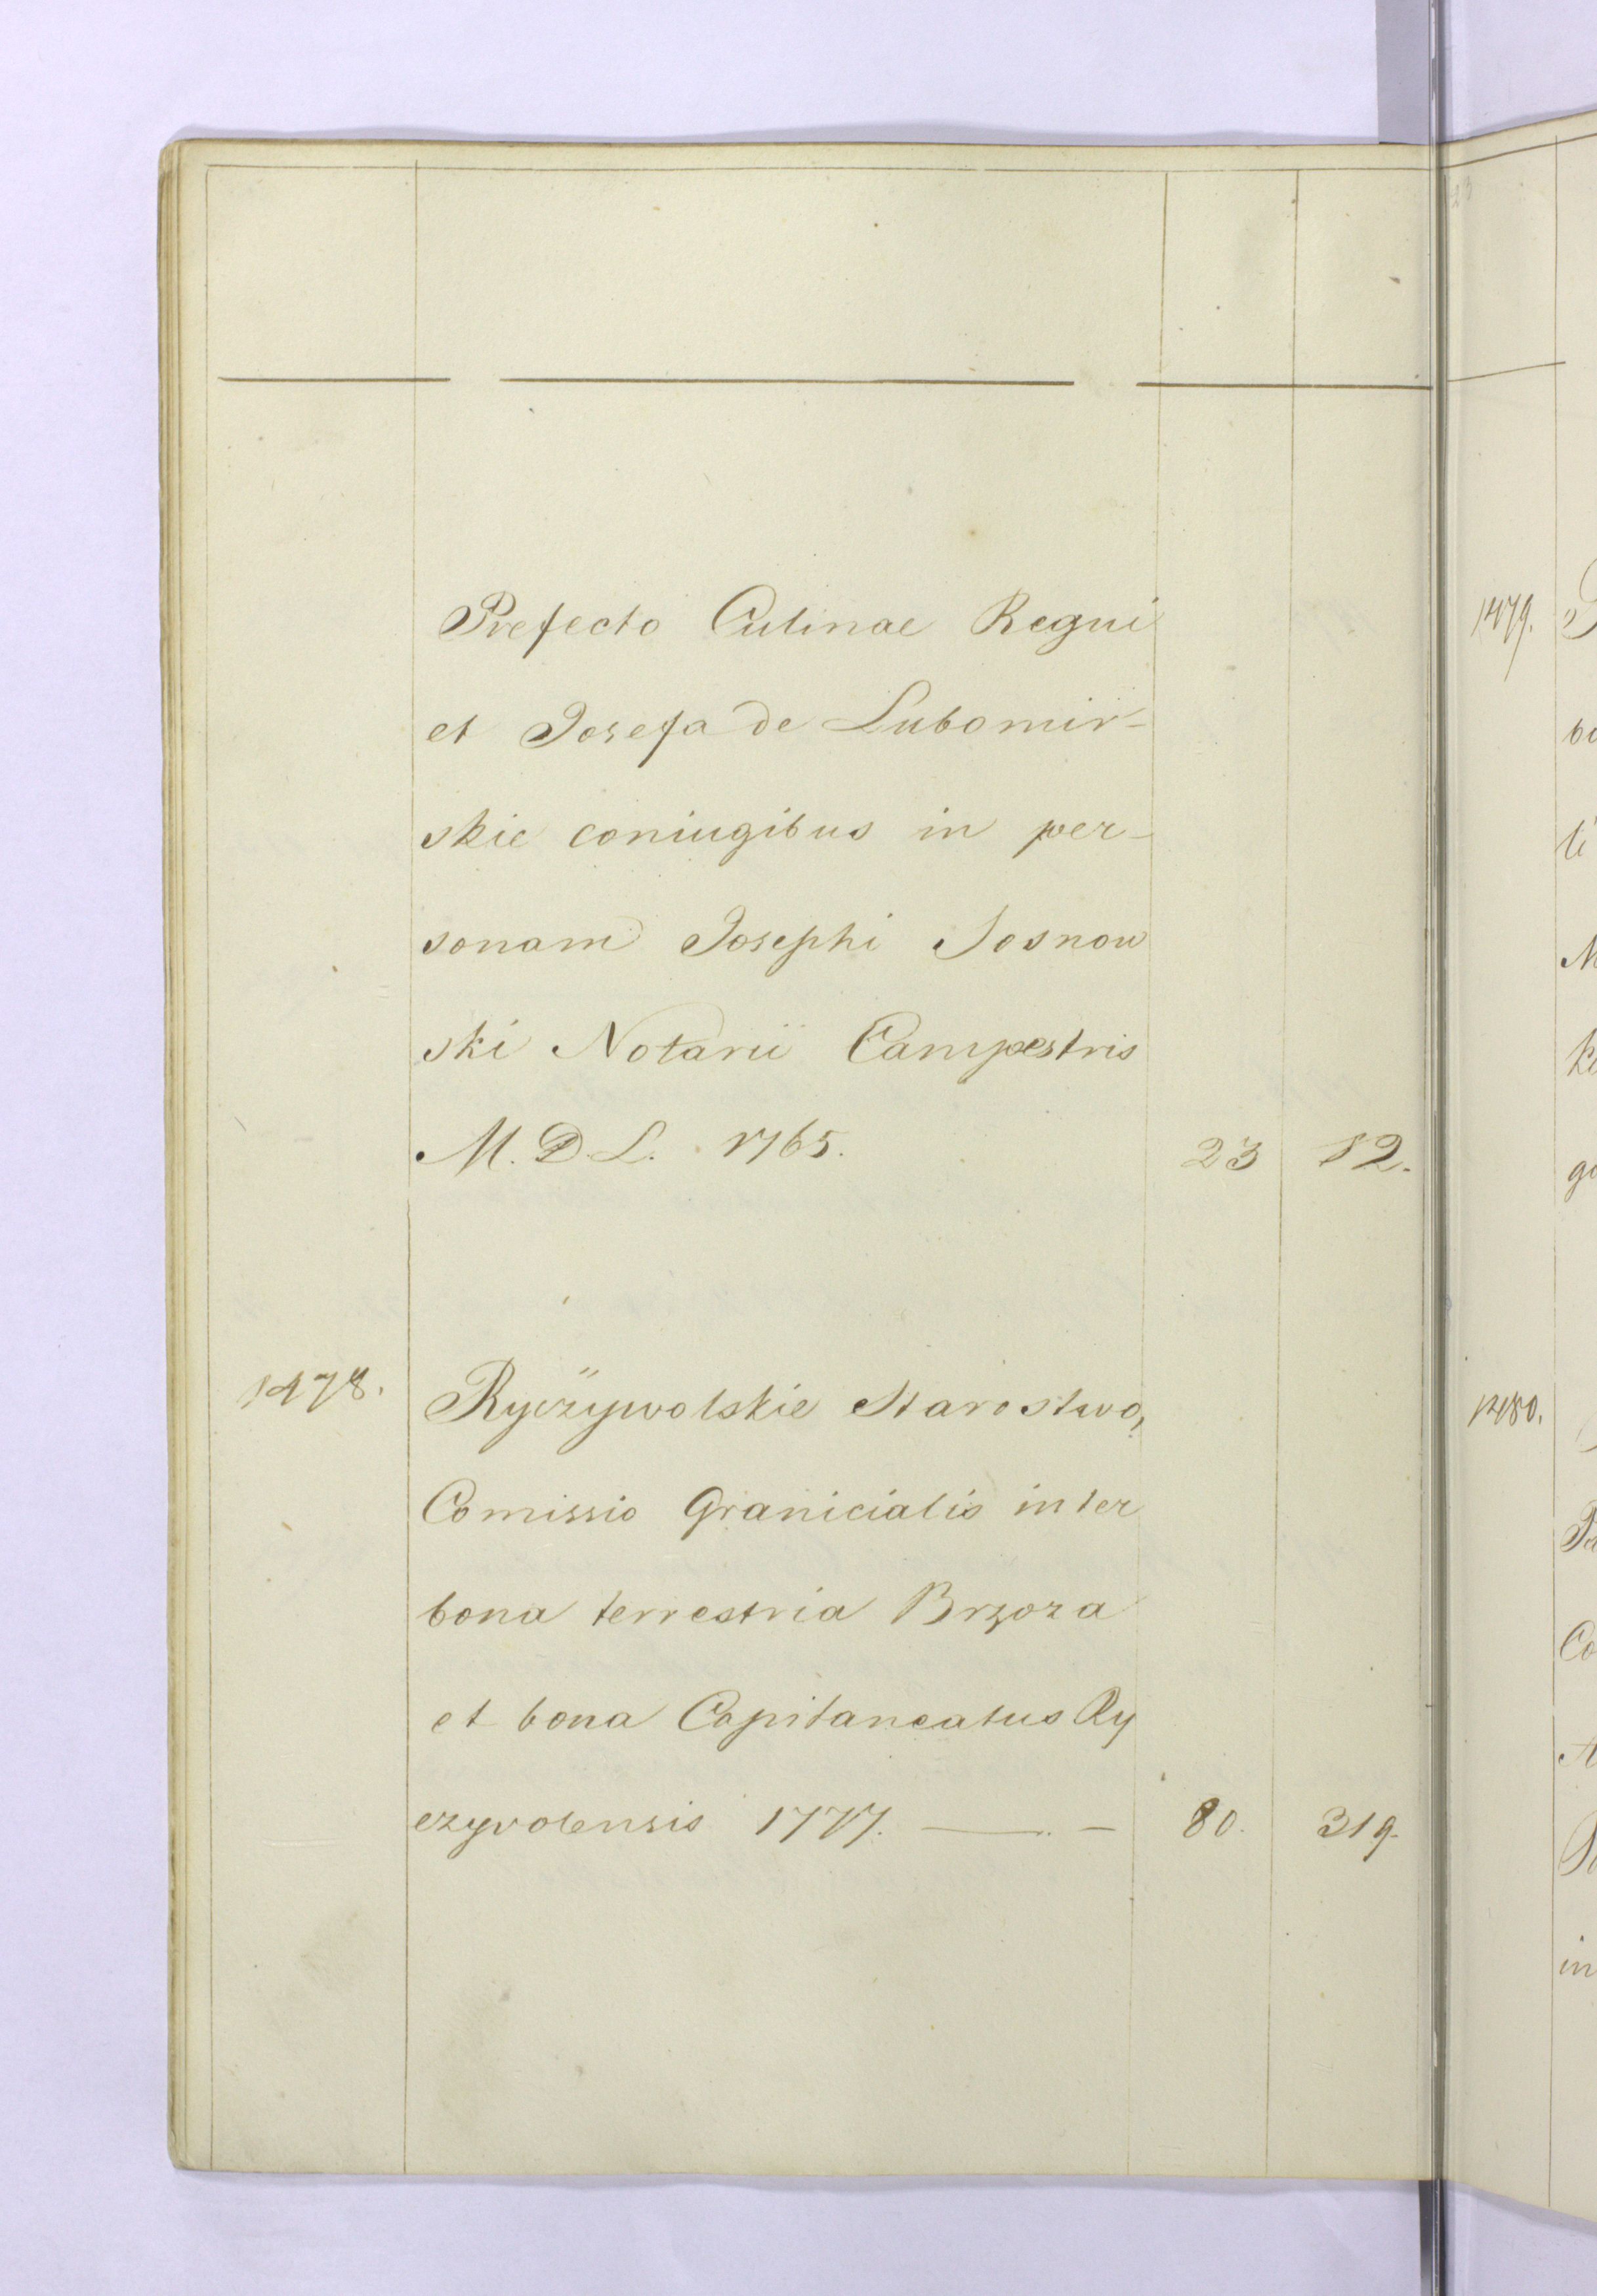 Prefecto Culinae Regni
et Josefa de Lubomir-
skie coniugibus in per-
sonam Josephi Sosnow
ski Notarii Campestris
M. D. L. 1765. 23 12.
1478. Ryczywolskie Starostwo,
Comissio Granicialis inter
bona terrestria Brzoza
et bona Capitaneatus Ry
czyvolensis 1777. — — 80. 319.
1479.
bo
li
M
ke
go
1480.
Pa
Co
A
in